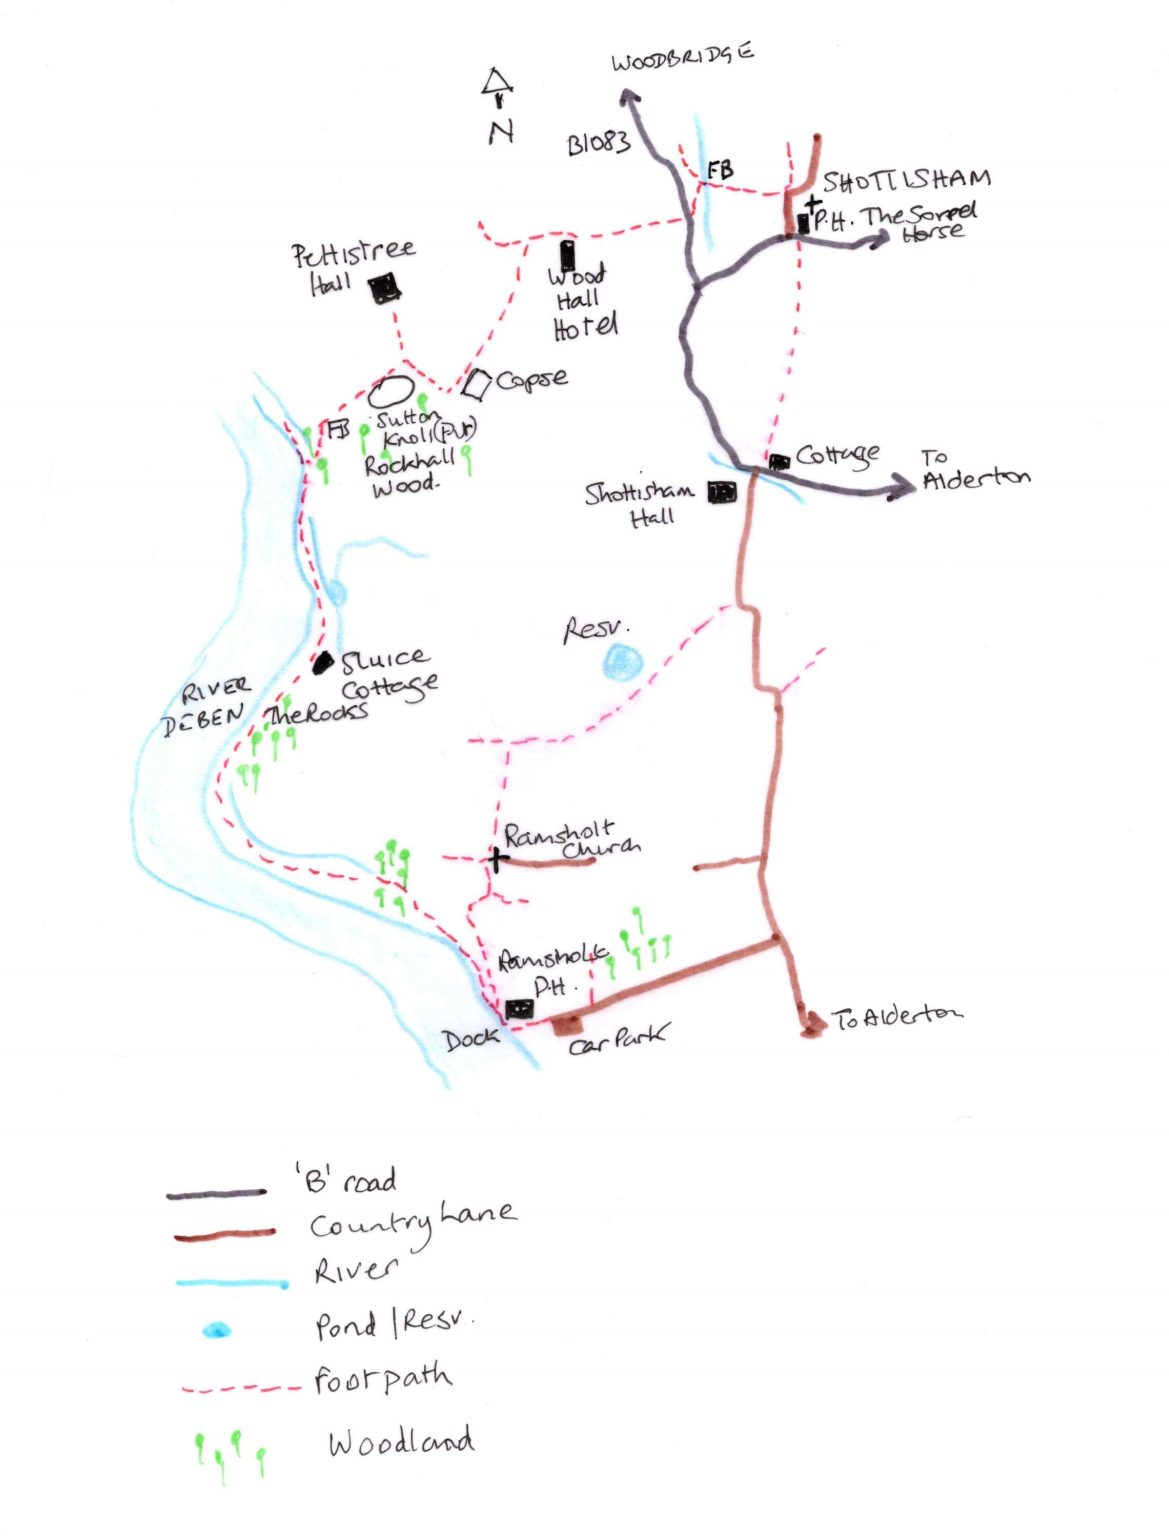 WOODBRIDGE
N
B1083
FB
SHOTTISHAM
P.H. The Sorrel
Horse
Pettistree
Hall
Wood
Hall
Hotel
Copse
FB
Sutton
Knoll (Pit)
Rockhall
Wood.
Cottage
To
Alderton
Shottisham
Hall
Resv.
Sluice
Cottage
RIVER
DEBEN
The Rocks
Ramsholt
Church
Ramsholt
P.H.
Dock
Car Park
To Alderton
'B' road
Country Lane
River
Pond / Resv.
footpath
Woodland